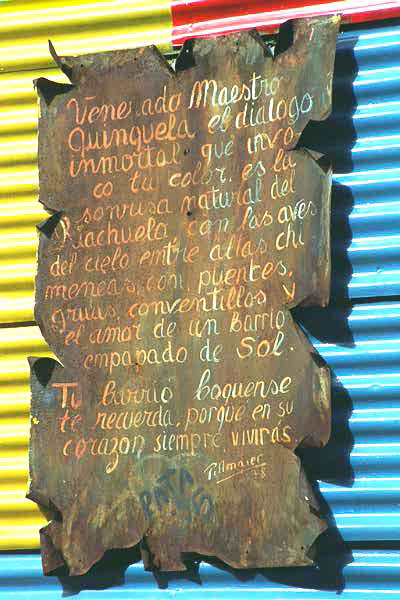 Venerado Maestro
Quinquela el dialogo
inmortal que invo
co tu color, es la
sonrisa natural del
Riachuelo con las aves
del cielo entre altas chi
meneas, con puentes,
gruas, conventillos y
el amor de un barrio
empapado de Sol.
Tu barrio boquense
te recuerda, porque en su
corazon siempre viviras.